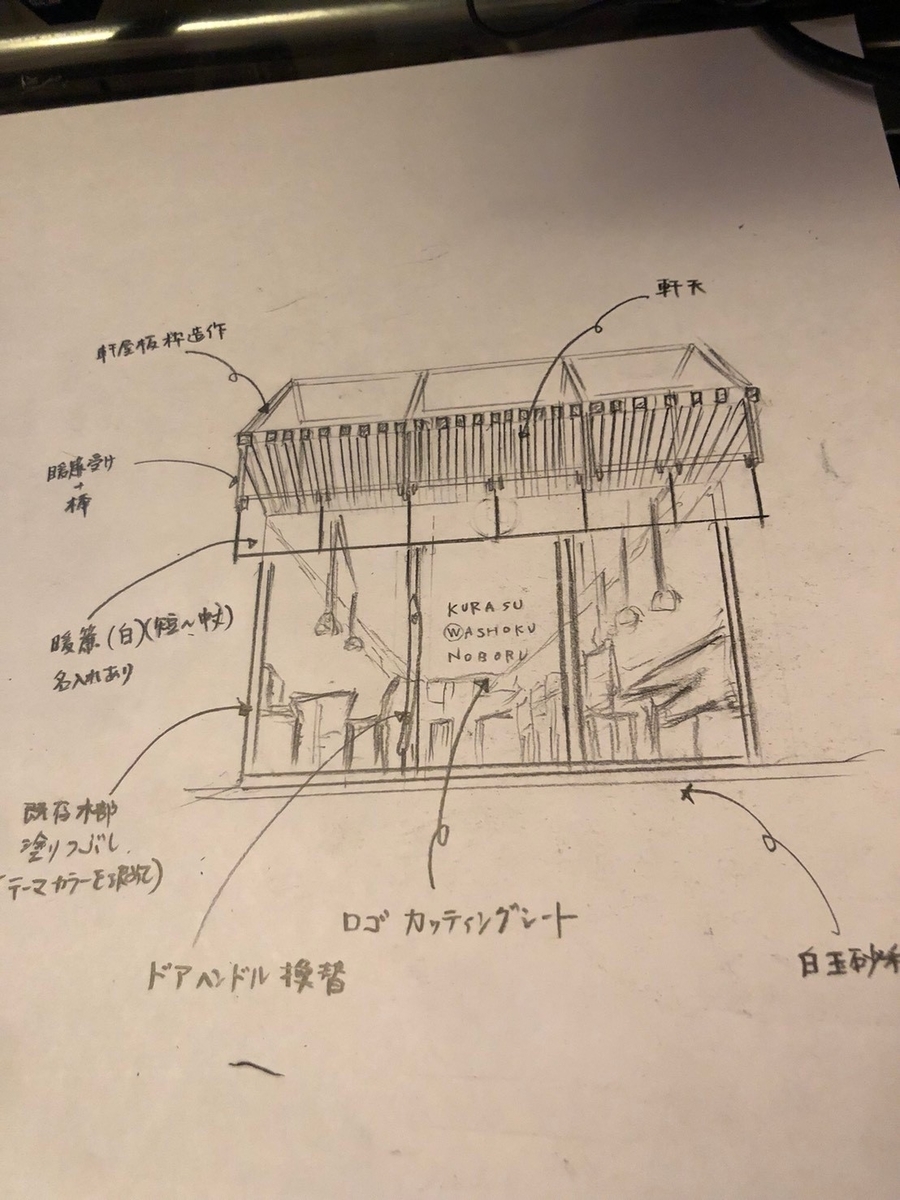 軒天
軒屋根枠造作
暖簾受け
+
棒
KURASU
WASHOKU
NOBORU
暖簾(白)(短〜中丈)
名入れあり
既存木部
塗りつぶし
(テーマカラーを決めて)
ロゴ カッティングシート
ドアハンドル 換替
白玉砂利